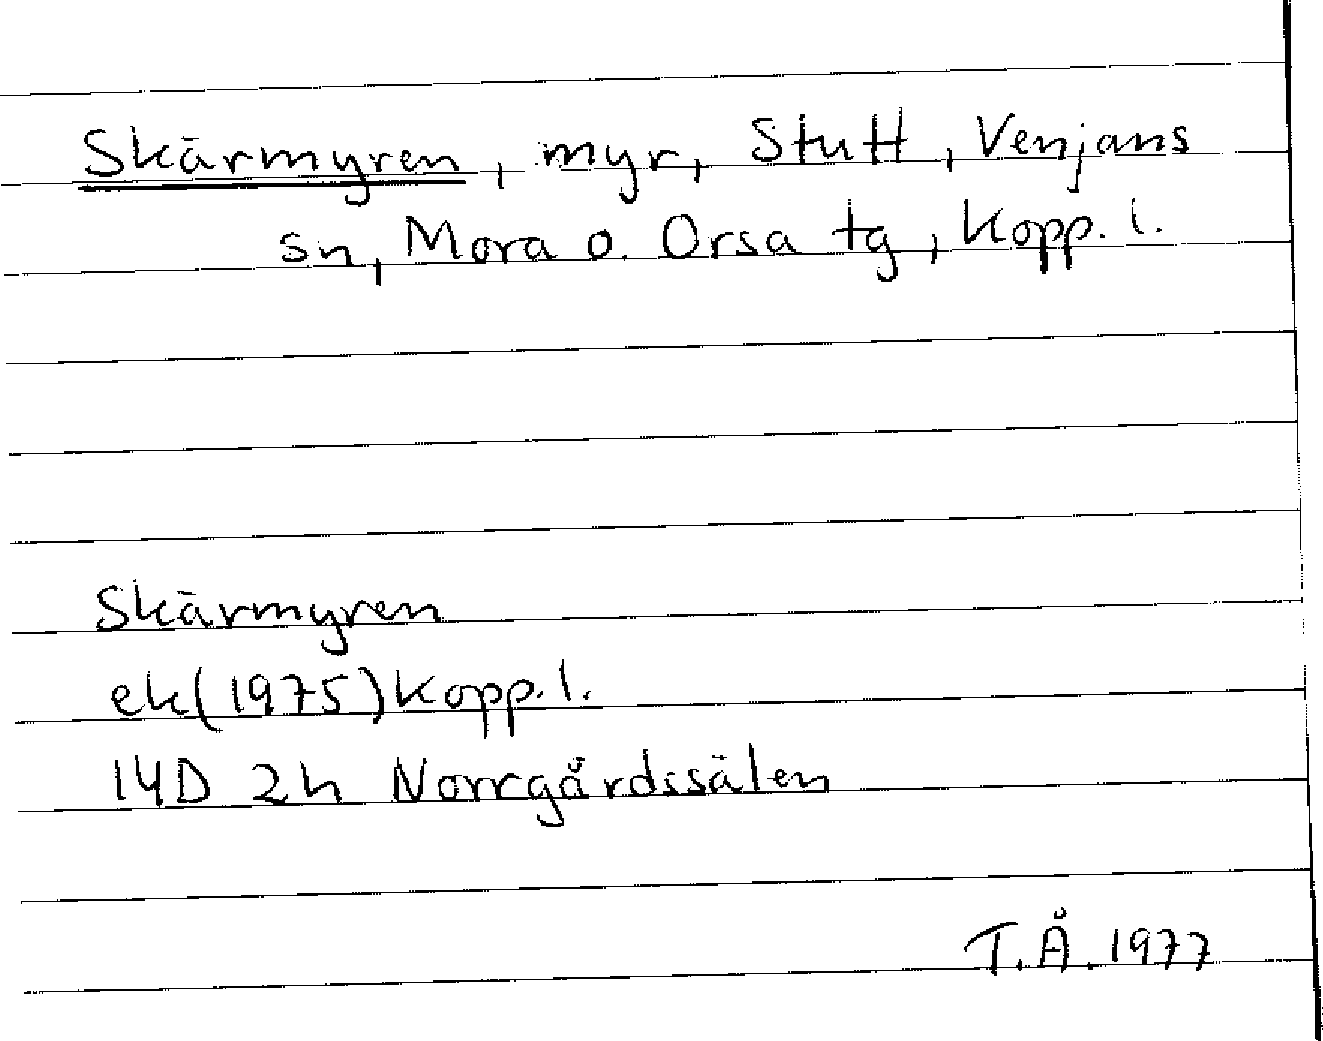 Skärmyren, myr, Stutt, Venjans
sn, Mora o. Orsa tg, Kopp. l.
Skärmyren
ek(1975)Kopp.l.
14D 2h Norrgårdssälen
T.Å.1977